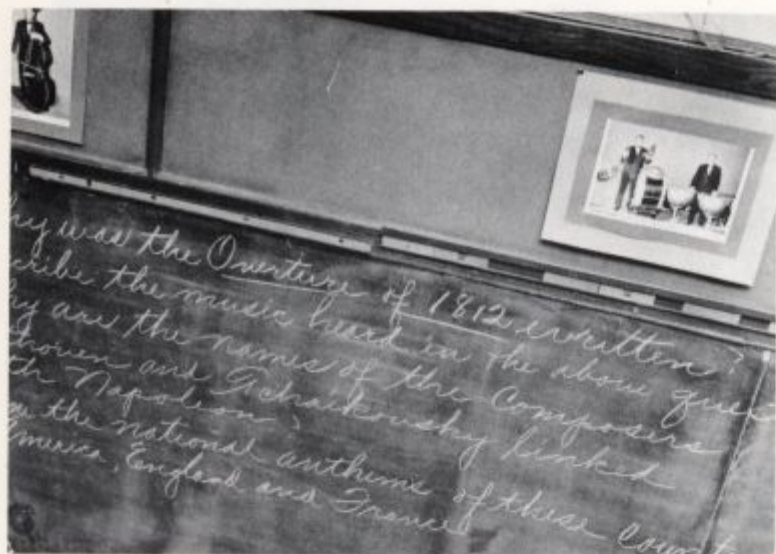 hy was the Overture of 1812 written?
cribe the music heard in the above ques
hy are the names of the Composers
thoven and Tchaikovsky linked
th Napoleon?
me the national anthems of these Count
America, England and France